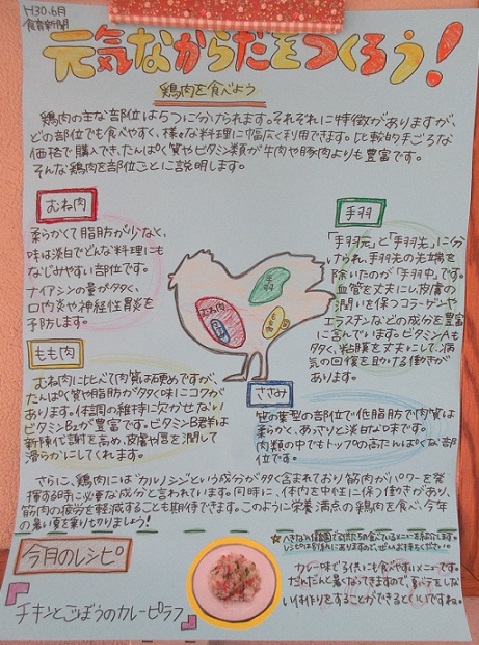 H30.6月
食育新聞
元気なからだをつくろう!
鶏肉を食べよう
鶏肉の主な部位は5つに分けられます。それぞれに特徴がありますが、
どの部位でも食べやすく、様々な料理に幅広く利用できます。比較的手ごろな
価格で購入でき、たんぱく質やビタミン類が牛肉や豚肉よりも豊富です。
そんな鶏肉を部位ごとに説明します。
むね肉
柔らかくて脂肪が少なく、
味は淡白でどんな料理にも
なじみやすい部位です。
ナイアシンの量が多く、
口内炎や神経性胃炎を
予防します。
手羽
「手羽元」と「手羽先」に分
けられ、手羽先の先端を
除いたのが「手羽中」です。
血管を丈夫にし、皮膚の
潤いを保つコラーゲンや
エラスチンなどの成分を豊富
に含んでいます。ビタミンAも
多く、粘膜を丈夫にして、病
気の回復を助ける働きが
あります。
手羽
むね肉
ささみ
もも肉
もも肉
むね肉に比べて肉質は硬めですが、
たんぱく質や脂肪が多く味にコクが
あります。体調の維持に欠かせない
ビタミンB2が豊富です。ビタミンB群は
新陳代謝を高め、皮膚や唇を潤して
滑らかにしてくれます。
ささみ
笹の葉型の部位で低脂肪で肉質は
柔らかく、あっさりと淡白な味です。
肉類の中でもトップの高たんぱくな部
位です。
さらに、鶏肉には「カルノシン」という成分が多く含まれており筋肉がパワーを発
揮する時に必要な成分と言われています。同時に、体内を中性に保つ働きがあり、
筋肉の疲労を軽減することも期待できます。このように栄養満点の鶏肉を食べ、今年
の暑い夏を乗り切りましょう!
今月のレシピ
チキンとごぼうのカレーピラフ
保育園で子供たちの食べているメニューを紹介します。
レシピは別にありますので、ぜひお持ちください。
カレー味で子供にも食べやすいメニューです。
だんだんと暑くなってきますので、夏バテをしな
い体作りをすることができるといいですね。